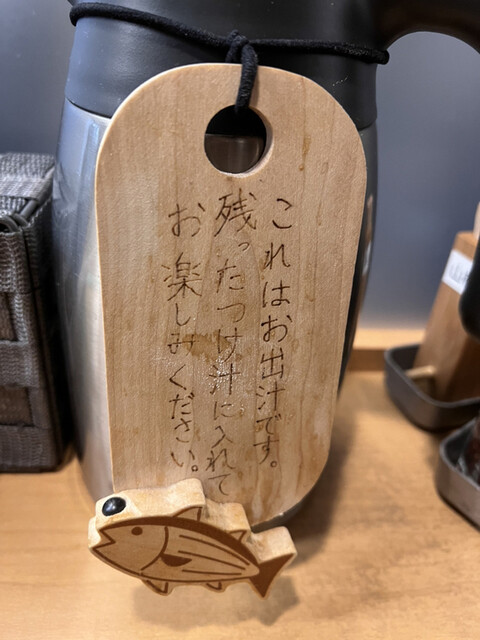 これはお出汁です。
残ったつけ汁に入れて
お楽しみください。